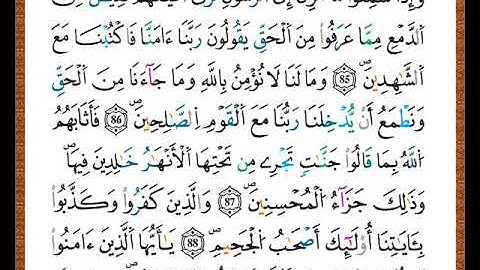 وَإِذَا سَمِعُواْ مَا أُنزِلَ إِلَى اَلرَّسُولِ تَرَىٰ أَعْيُنَهُمْ تَفِيضُ مِنَ
اَلدَّمْعِ مِمَّا عَرَفُواْ مِنَ اَلْحَقِّ يَقُولُونَ رَبَّنَا ءَامَنَّا فَاكْتُبْنَا مَعَ
اَلشَّٰهِدِينَۖ 85 وَمَا لَنَا لَا نُؤْمِنُ بِاللَّهِ وَمَا جَآءَنَا مِنَ اَلْحَقِّ
وَنَطْمَعُ أَنْ يُّدْخِلَنَا رَبُّنَا مَعَ اَلْقَوْمِ اِلصَّٰلِحِينَۖ 86 فَأَثَٰبَهُمُ
اُللَّهُ بِمَا قَالُواْ جَنَّٰتٍ تَجْرِے مِن تَحْتِهَا اَلْأَنْهَٰرُ خَٰلِدِينَ فِيهَاۖ
وَذَٰلِكَ جَزَآءُ اُلْمُحْسِنِينَۖ 87 وَالَّذِينَ كَفَرُواْ وَكَذَّبُواْ
بِـَٔايَٰتِنَا أُوْلَٰٓئِكَ أَصْحَٰبُ اُلْجَحِيمِۖ 88 يَٰٓأَيُّهَا اَلَّذِينَ ءَامَنُواْ